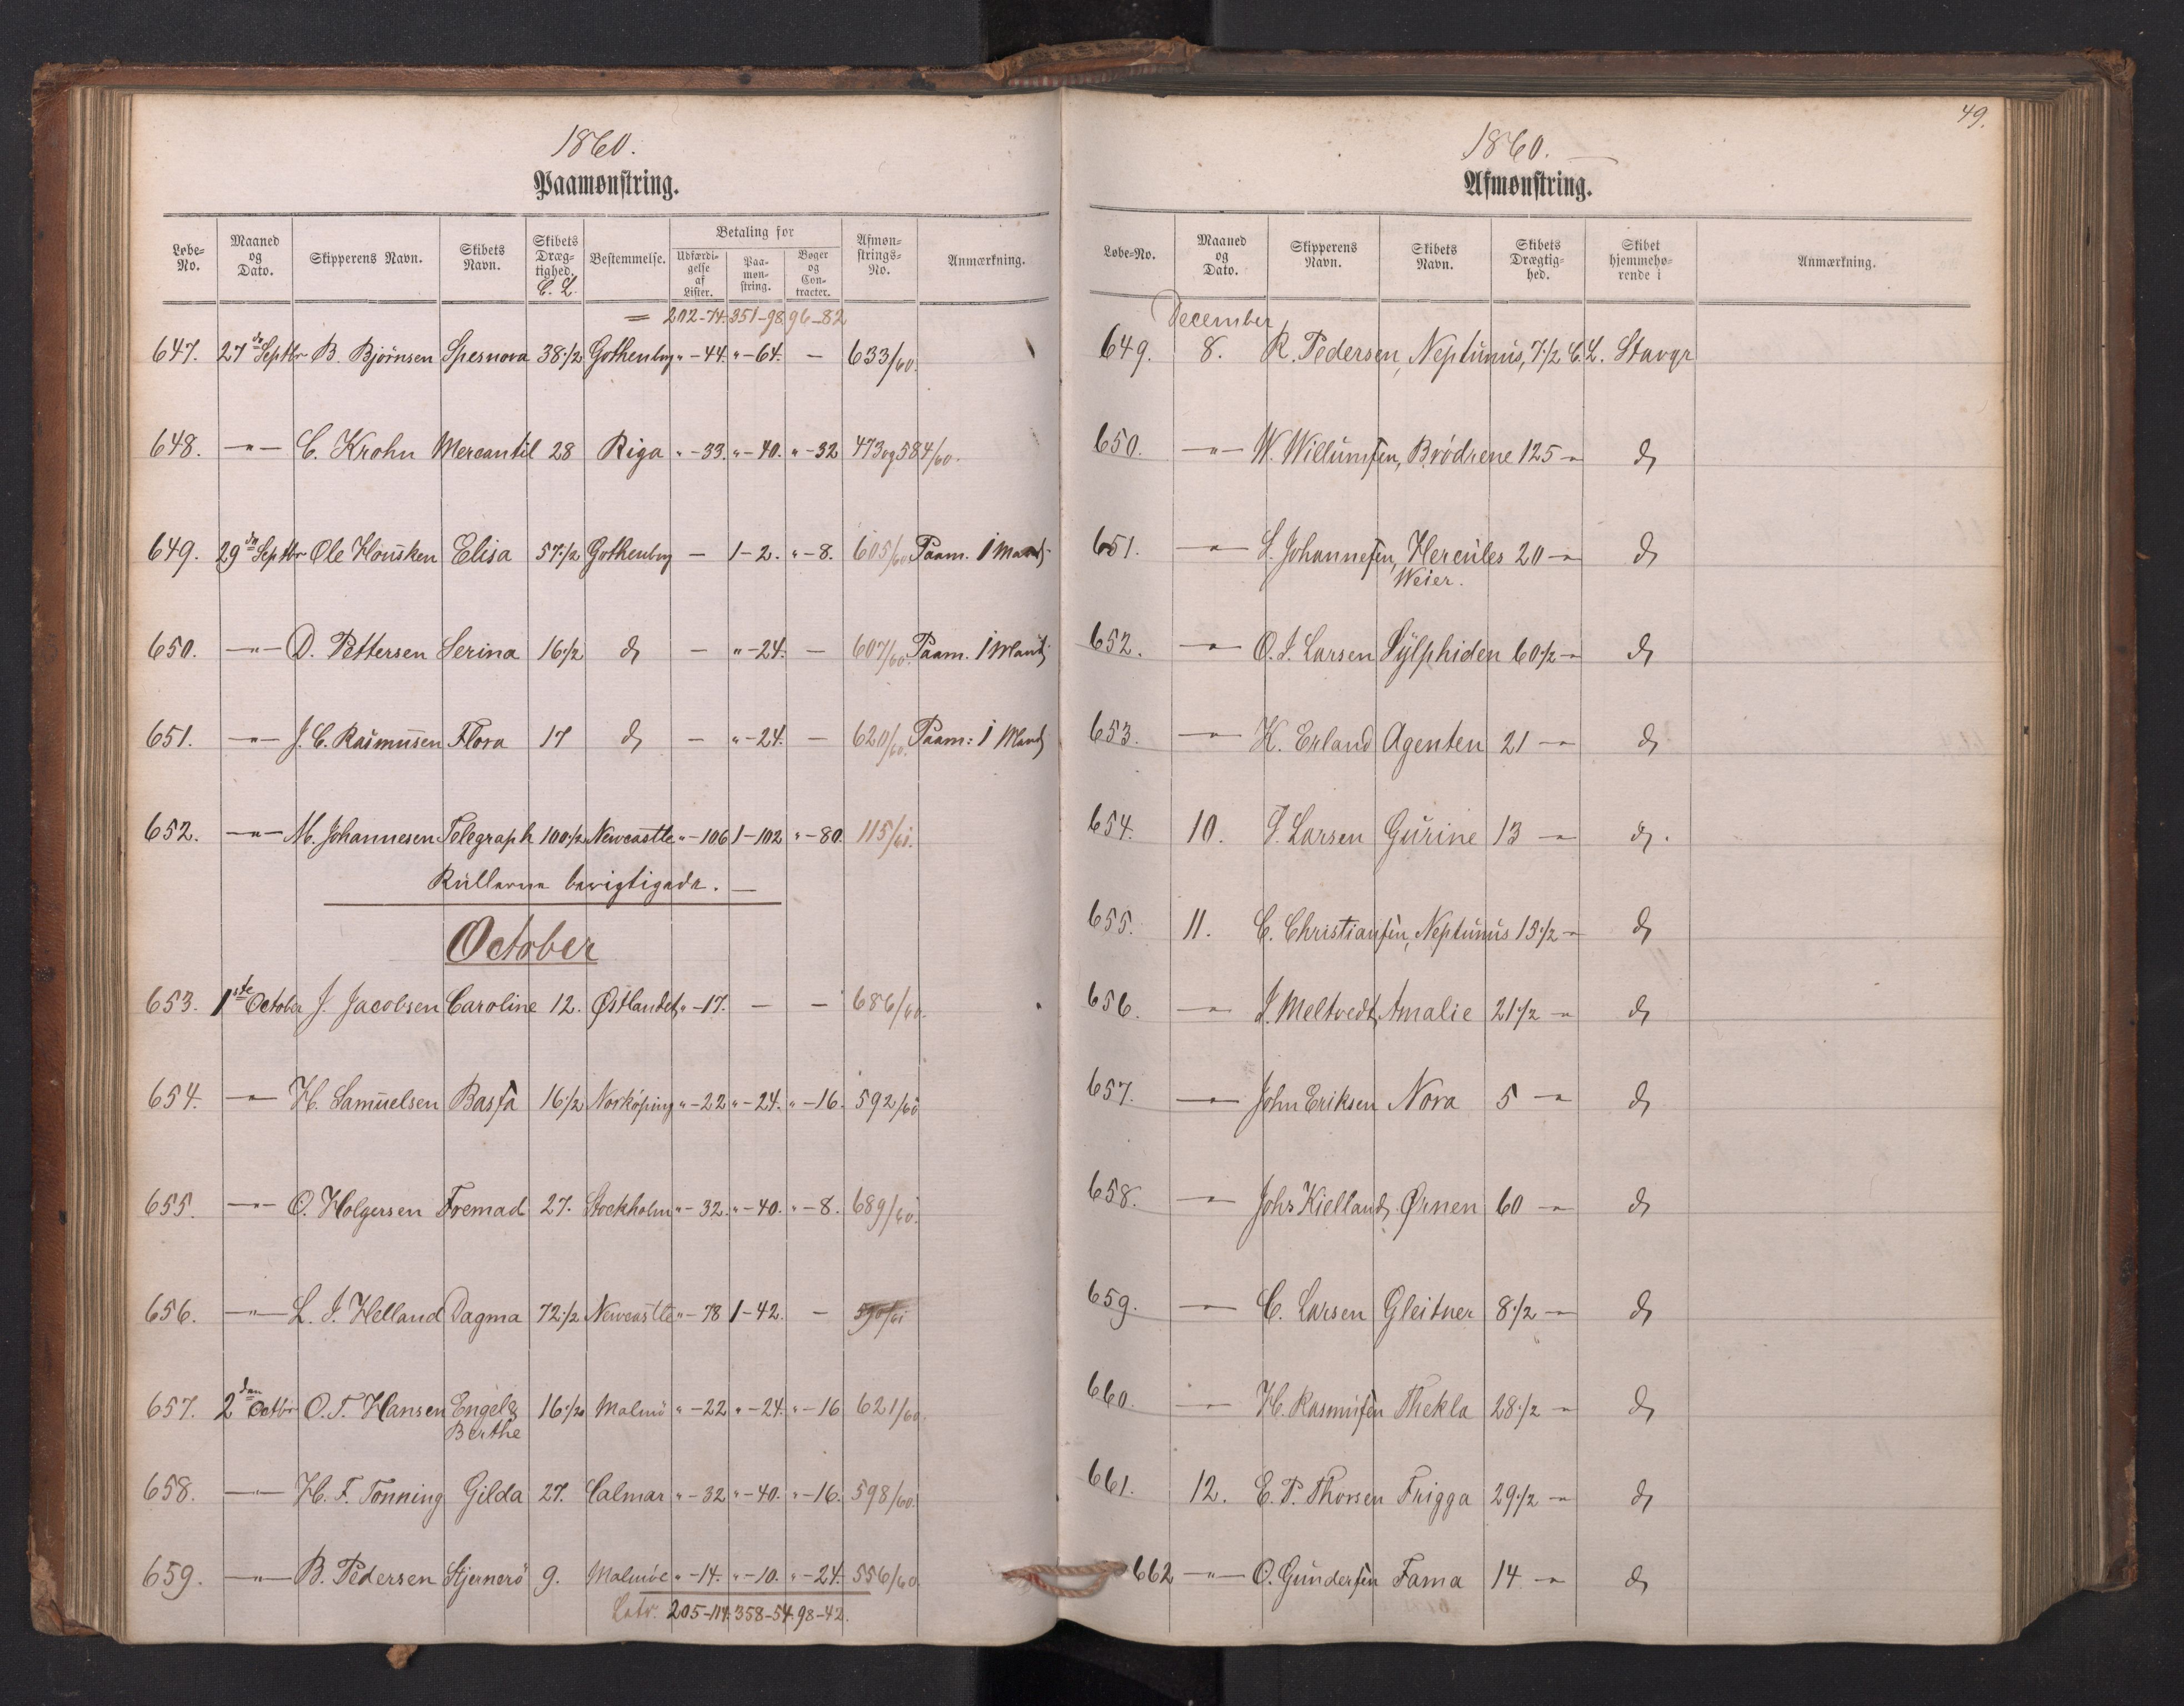 1860.
Paamønstring.
Løbe-No. Maaned og Dato. Skipperens Navn. Skibets Navn. Skibets Dræg-tighed. C. L. Bestemmelse. Betaling for Udfærdi-gelse af Lister. Paa-møn-string. Bøger og Con-tracter. Afmøn-strings-No. Anmærkning.
= 202-74. 351-98. 96-82
647. 27de Septbr B. Bjørnsen Spesnova 38 1/2 Gothenbrg " -44. " -64. - 633/60.
648. -"- C. Krohn Mercantil 28 Riga " -33. " -40. " -32 473 og 584/60.
649. 29de Septbr Ole Housken Elisa 57 1/2 Gothenbrg - 1-2. " -8. 605/60 Paam. 1 Mand
650. -"- D. Pettersen Serina 16 1/2 do - " -24. - 607/60. Paam. 1 Mand
651. -"- J. C. Rasmusen Flora 17 do - " -24. - 620/60. Paam: 1 Mand
652. -"- M. Johannesen Telegraph 100 1/2 Newcastle " -106 1-102 " -80. 115/61.
Rullerne berigtigede. -
October
653. 1ste October J. Jacobsen Caroline 12. Østlandet " -17. - - 686/60.
654. -"- H. Samuelsen Basfa 16 1/2 Norköping " -22 " -24. " -16. 592/60
655. -"- O. Holgersen Fremad 27. Stockholm " -32. " -40. " -8. 689/60.
656. -"- L. J. Helland Dagma 72 1/2 Newcastle " -78 1-42. -
657. 2den Octbr O. T. Hansen Engel & 16 1/2 Malmö " -22 " -24. " -16 621/60.
Berthe
658. -"- H. F. Tonning Gilda 27. Calmar " -32 " -40. " -16. 598/60.
659. -"- B. Pedersen Stjernerö 9. Malmöe " -14. " -10. " -24. 556/60
Latr. 205-114. 358-54. 98-42.
49.
1860. -
Afmønstring.
Løbe-No. Maaned og Dato. Skipperens Navn. Skibets Navn. Skibets Drægtig-hed. Skibet hjemmehø-rende i Anmærkning.
December
649. 8. R. Pedersen, Neptunus, 7 1/2 C. L. Stavgr
650. -"- W. Willumsen, Brödrene 125 -"- do
651. -"- L. Johannesen, Hercules 20 -"- do
Weier.
652. -"- O. J. Larsen Sylphiden 60 1/2 -"- do
653. -"- K. Erland Agenten 21 -"- do
654. 10. P. Larsen Gurine 13 -"- do.
655. 11. C. Christiansen, Neptunus 15 1/2 -"- do
656. -"- J. Meltvedt, Amalie 21 1/2 -"- do
657. -"- John Eriksen Nora 5 -"- do
658. -"- Johs Kielland, Ørnen 60 -"- do
659. -"- C. Larsen Gleitner 8 1/2 -"- do
660. -"- H. Rasmusen Thekla 28 1/2 -"- do
661. 12. E. P. Thorsen Frigga 29 1/2 -"- do
662 -"- O. Gundersen Fama 14 -"- do